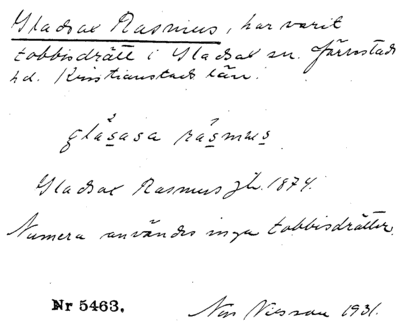 Gladsax Rasmus, har varit
tobbisdrätt i Gladsax sn. Järrestads
hd. Kristianstads län.
glásasa rásmus
Gladsax Rasmus jb. 1874.
Numera användes inga tobbisdrätter.
Nr 5463. Nils Nilsson 1931.